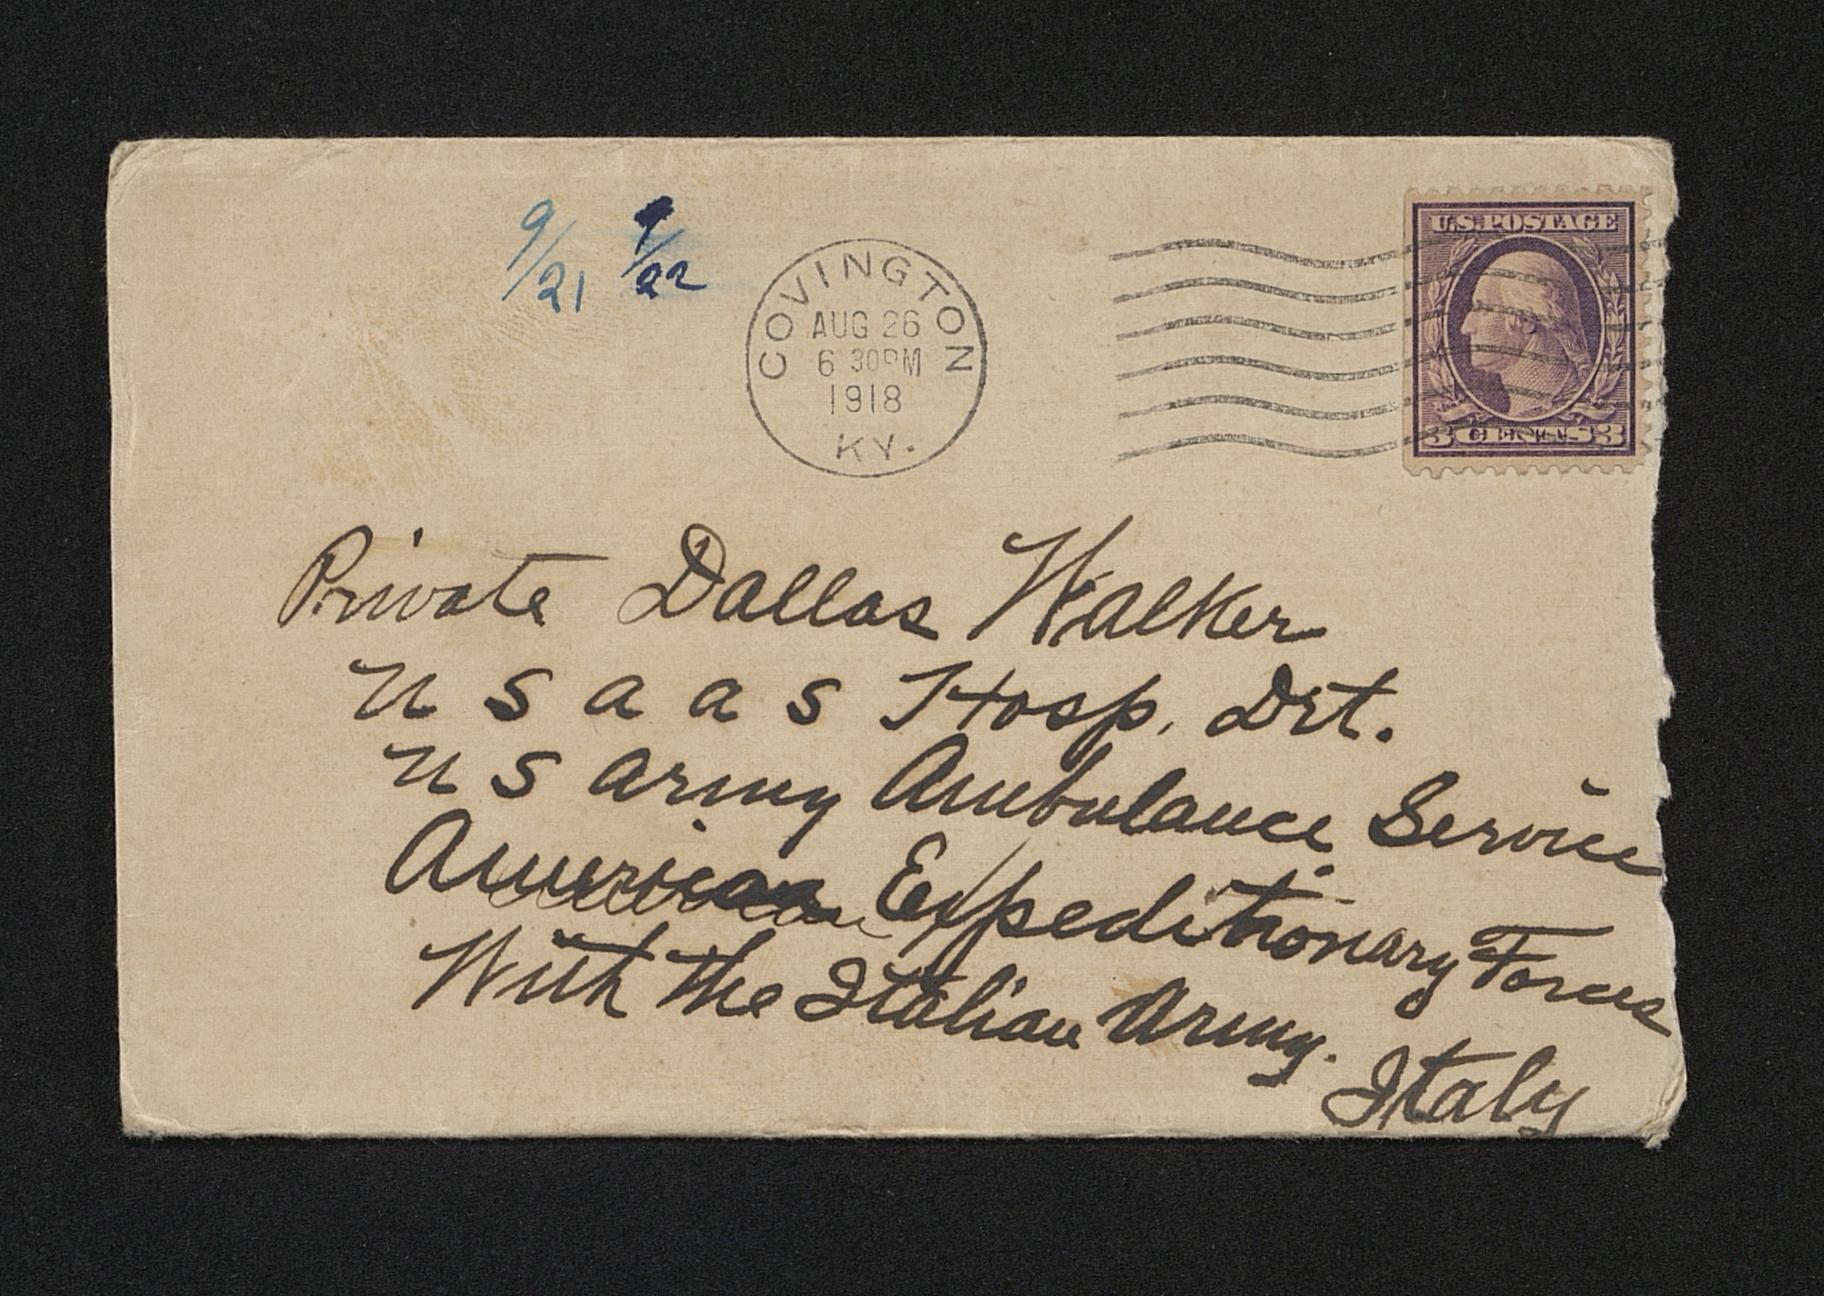 9/21 9/22
COVINGTON
AUG 26
6 30PM
1918
KY.
U.S. POSTAGE
3 CENTS 3
Private Dallas Walker
U S a a S Hosp. Det.
U S Army Ambulance Service
American Expeditionary Forces
With the Italian Army.
Italy